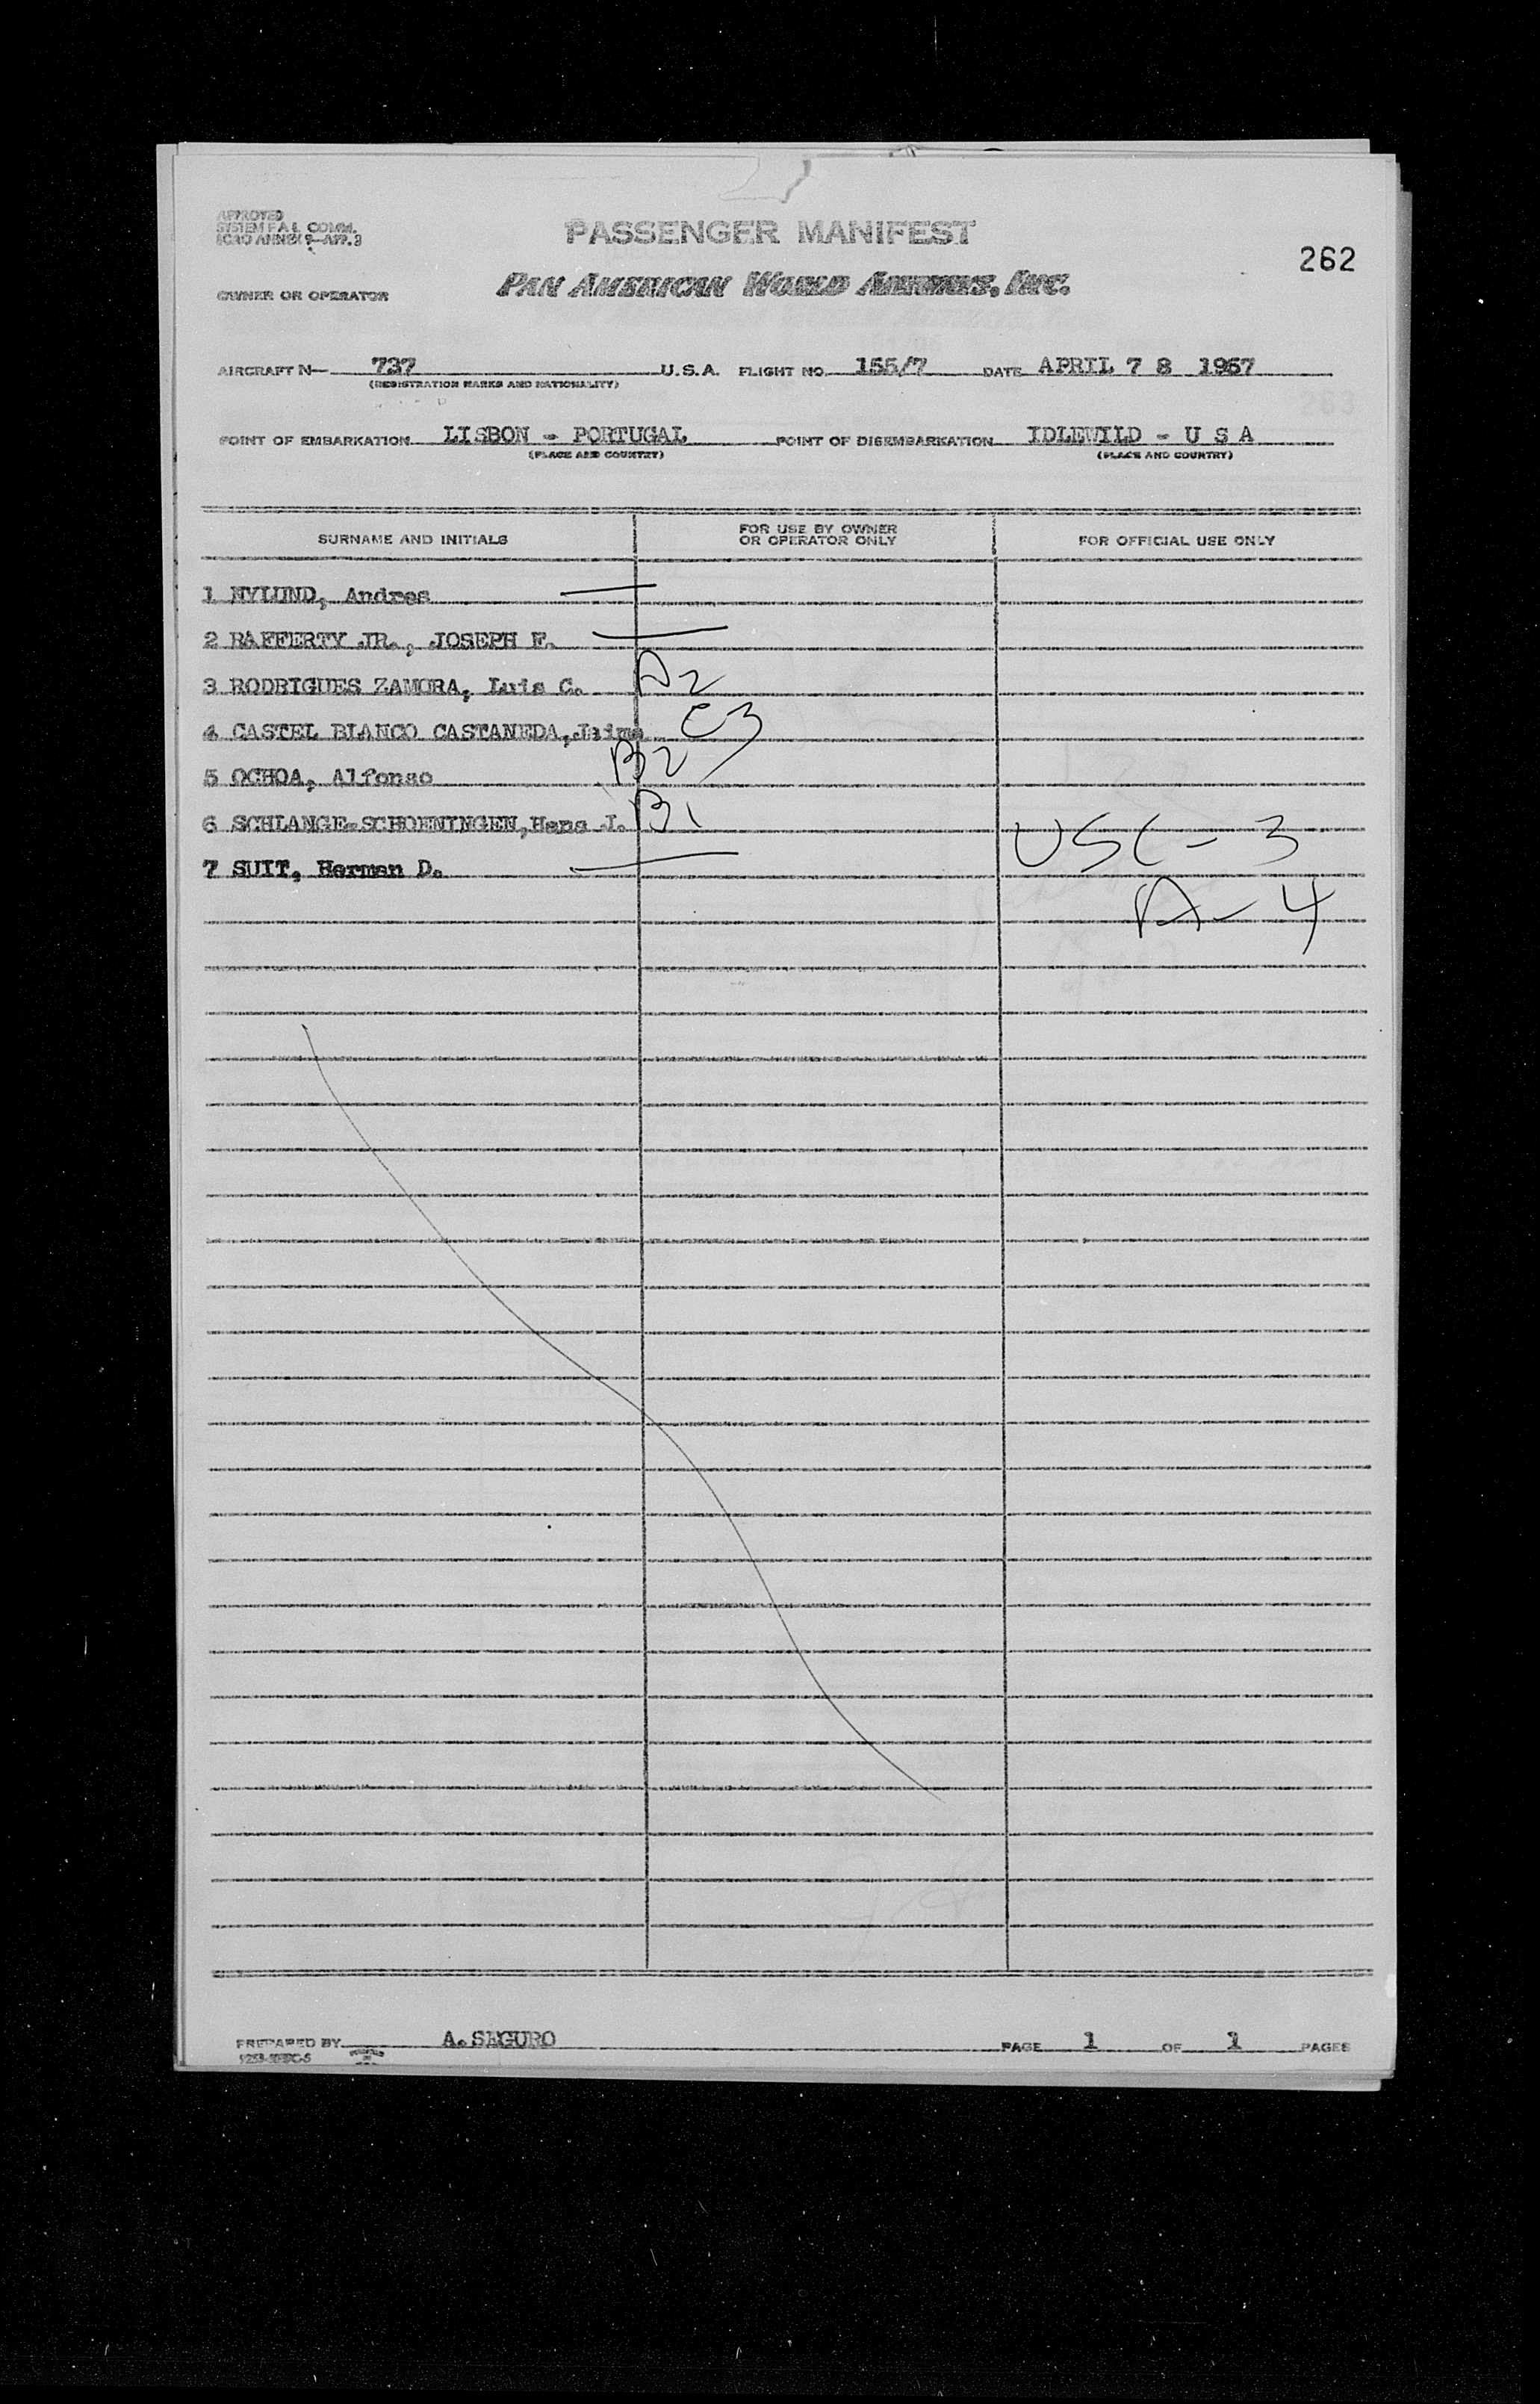 APPROVED
SYSTEM F.A.L. COMM.
ICAO ANNEX 9—APP. 3
PASSENGER MANIFEST
262
OWNER OR OPERATOR PAN AMERICAN WORLD AIRWAYS, INC.
AIRCRAFT N— 737 U.S.A. FLIGHT NO. 155/7 DATE APRIL 7 8 1957
(REGISTRATION MARKS AND NATIONALITY)
POINT OF EMBARKATION LISBON - PORTUGAL POINT OF DISEMBARKATION IDLEWILD - U S A
(PLACE AND COUNTRY) (PLACE AND COUNTRY)
SURNAME AND INITIALS FOR USE BY OWNER OR OPERATOR ONLY FOR OFFICIAL USE ONLY
1 NYLUND, Andres
2 RAFFERTY JR., JOSEPH F.
3 RODRIGUES ZAMORA, Luis C. A2
4 CASTEL BLANCO CASTANEDA, Jaime C3
5 OCHOA, Alfonso B2
6 SCHLANGE-SCHOENINGEN, Hans J. B1 USC - 3
7 SUIT, Herman D.
A - 4
PREPARED BY A. SEGURO PAGE 1 OF 1 PAGES